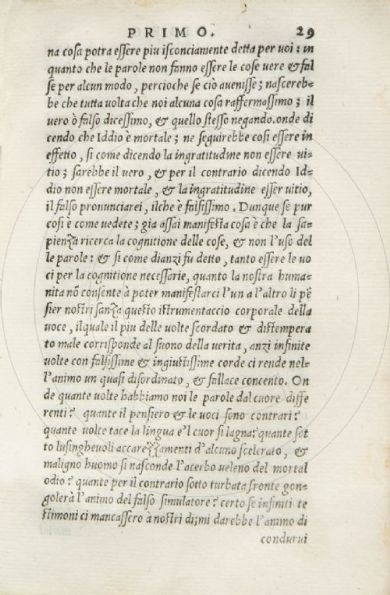 PRIMO. 29
na cosa potra essere piu isconciamente detta per voi: in
quanto che le parole non fanno essere le cose vere & fal
se per alcun modo, percioche se ciò avenisse; nascereb-
be che tutta volta che noi alcuna cosa raffermassimo; il
vero ò falso dicessimo, & quello stesso negando. onde di
cendo che Iddio è mortale; ne seguirebbe cosi essere in
effetto, si come dicendo la ingratitudine non essere ui-
tio; sarebbe il uero, & per il contrario dicendo Id-
dio non essere mortale, & la ingratitudine esser uitio,
il falso pronunciarei, ilche è falsissimo. Dunque se pur
cosi è come uedete; gia assai manifesta cosa è che la sa-
pienza ricerca la cognitione delle cose, & non l'uso del
le parole: & si come dianzi fu detto, tanto essere le uo
ci per la cognitione necessarie, quanto la nostra huma-
nita nõ consente à poter manifestarci l'un a l'altro li pẽ
sier nostri sanza questo istrumentaccio corporale della
uoce, ilquale il piu delle uolte scordato & distempera
to male corrisponde al suono della uerita, anzi infinite
uolte con falsissime & ingiustissime corde ci rende nel-
l'animo un quasi disordinato, & fallace concento. On
de quante uolte habbiamo noi le parole dal cuore diffe
renti? quante il pensiero & le uoci sono contrari?
quante uolte tace la lingua e'l cuor si lagna? quante sot
to lusingheuoli accarezzamenti d'alcuno scelerato, &
maligno huomo si nasconde l'acerbo ueleno del mortal
odio? quante per il contrario sotto turbata fronte gon-
golerà l'animo del falso simulatore? certo se infiniti te
stimoni ci mancassero a nostri dì; mi darebbe l'animo di
condurui